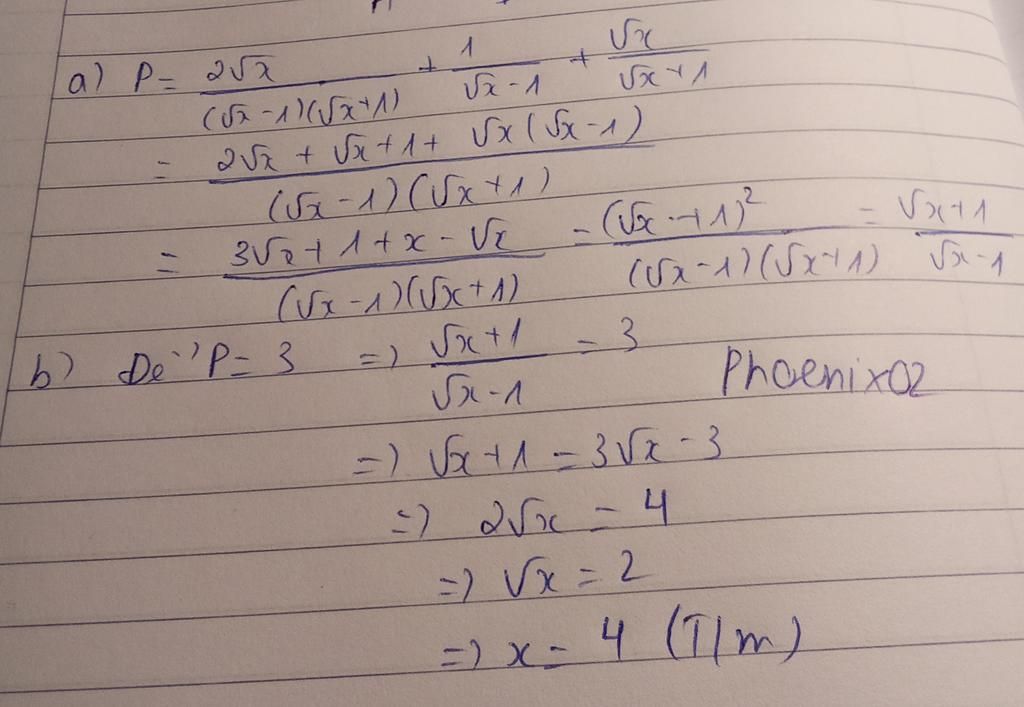 a) P = 2√x / (√x - 1)(√x + 1) + 1 / √x - 1 + √x / √x + 1
= 2√x + √x + 1 + √x(√x - 1) / (√x - 1)(√x + 1)
= 3√x + 1 + x - √x / (√x - 1)(√x + 1) = (√x + 1)² / (√x - 1)(√x + 1) = √x + 1 / √x - 1
b) Để P = 3 => √x + 1 / √x - 1 = 3
Phoenix02
=> √x + 1 = 3√x - 3
=> 2√x = 4
=> √x = 2
=> x = 4 (T/m)